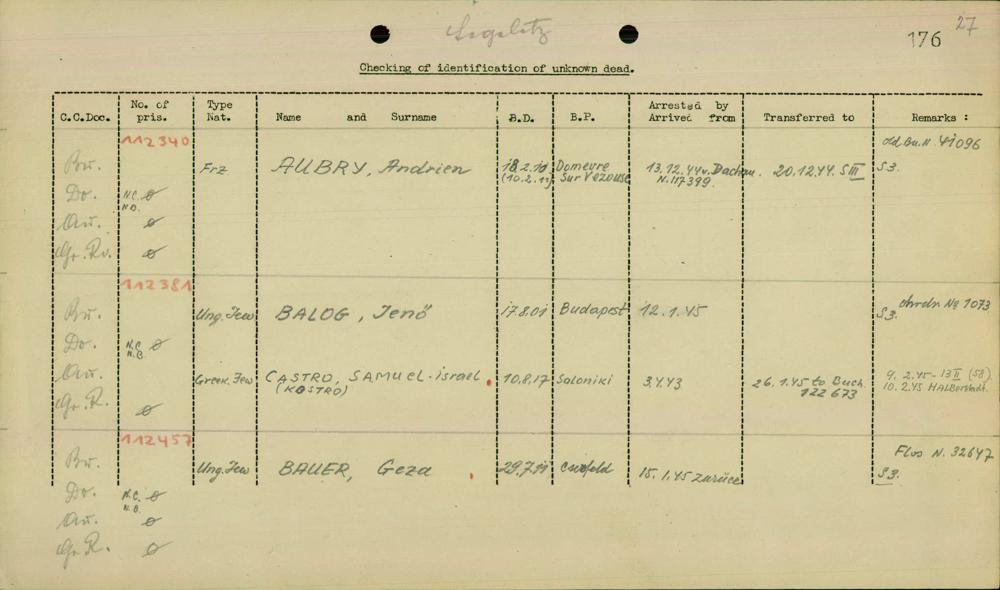 27
176
Checking of identification of unknown dead.
C.C.Doc. No. of pris. Type Nat. Name and Surname B.D. B.P. Arrested by Arrived from Transferred to Remarks :
112340
Bu. Frz AUBRY, Andrien 18.2.10 Domevre 13.12.44 v. Dachau. 20.12.44 SIII S3.
(10.2.11) Sur Vezouse N. 117399.
Do. N.C. ø
N.B.
Au. ø
Gr. Rv. ø
112381
Bu. Ung. Jew BALOG, Jenő 17.8.01 Budapest 12.1.45 S3. No 1073
Do. N.C. ø
N.B.
Au. Greek. Jew CASTRO, SAMUEL-israel. 10.8.17 Saloniki 3.4.43 26.1.45 to Buch. 9. 2.45 - 13 II (58)
(KOSTRO) 122673 10. 2.45 HALBerstadt.
Gr. R. ø
112457
Flos N. 32647
Bu. Ung. Jew BAUER, Geza 29.7.91 15.1.45 zurück S3.
Do. N.C. ø
N.B.
Au. ø
Gr R. ø